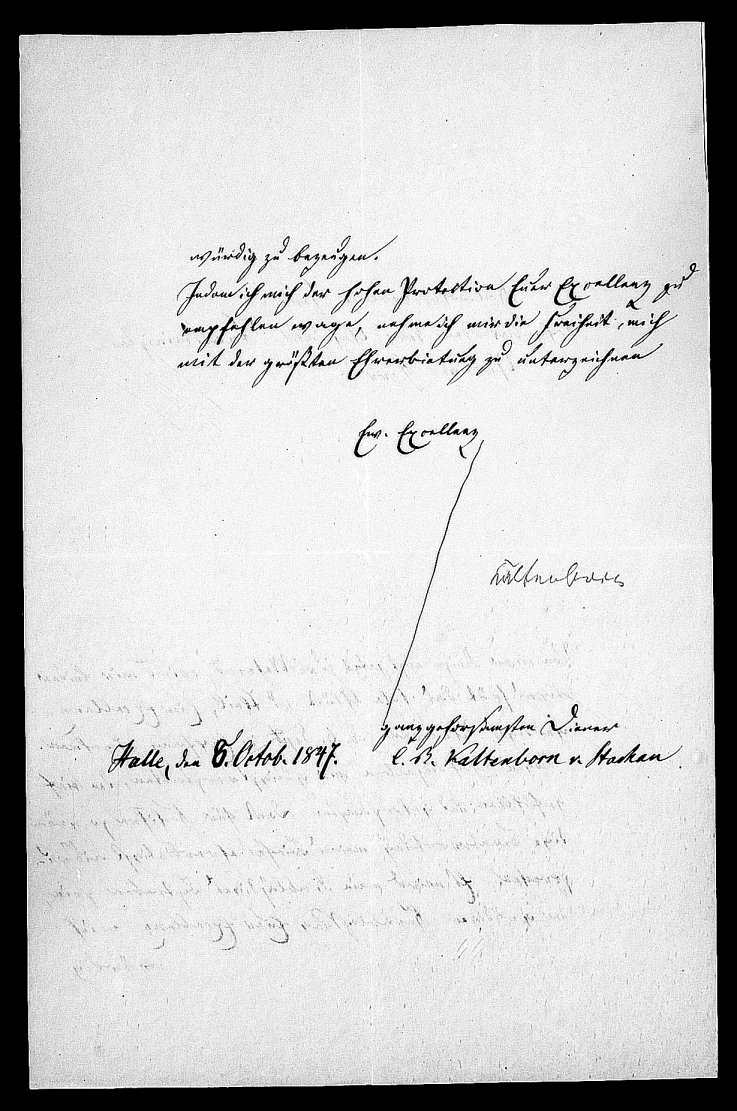 würdig zu bezeugen.
Indem ich mich der hohen Protektion Euer Excellenz zu
empfehlen wage, nehme ich mir die Freiheit, mich
mit der größten Ehrerbietung zu unterzeichnen
Ew. Excellenz
Kaltenborn
ganz gehorsamsten Diener
Halle, den 8. Octob. 1847. C. B. Kaltenborn v. Stachau